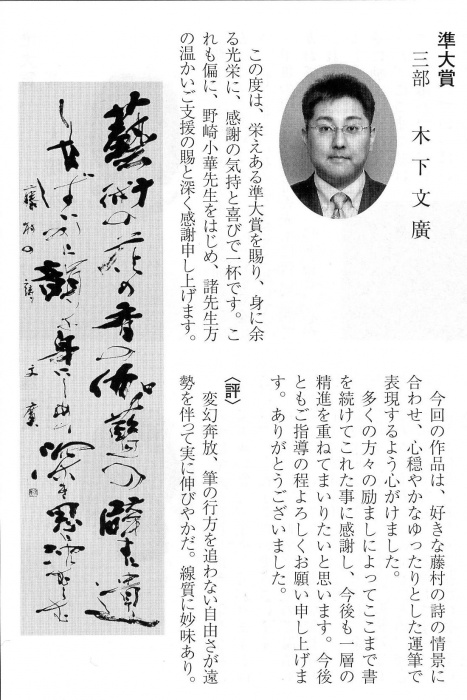 準大賞
三部 木下文廣
この度は、栄えある準大賞を賜り、身に余
る光栄に、感謝の気持と喜びで一杯です。こ
れも偏に、野崎小華先生をはじめ、諸先生方
の温かいご支援の賜と深く感謝申し上げます。
今回の作品は、好きな藤村の詩の情景に
合わせ、心穏やかなゆったりとした運筆で
表現するよう心がけました。
多くの方々の励ましによってここまで書
を続けてこれた事に感謝し、今後も一層の
精進を重ねてまいりたいと思います。今後
ともご指導の程よろしくお願い申し上げま
す。ありがとうございました。
〈評〉
変幻奔放、筆の行方を追わない自由さが遠
勢を伴って実に伸びやかだ。線質に妙味あり。
藝術の花の香の伽藍の
身に
藤村の詩 文廣